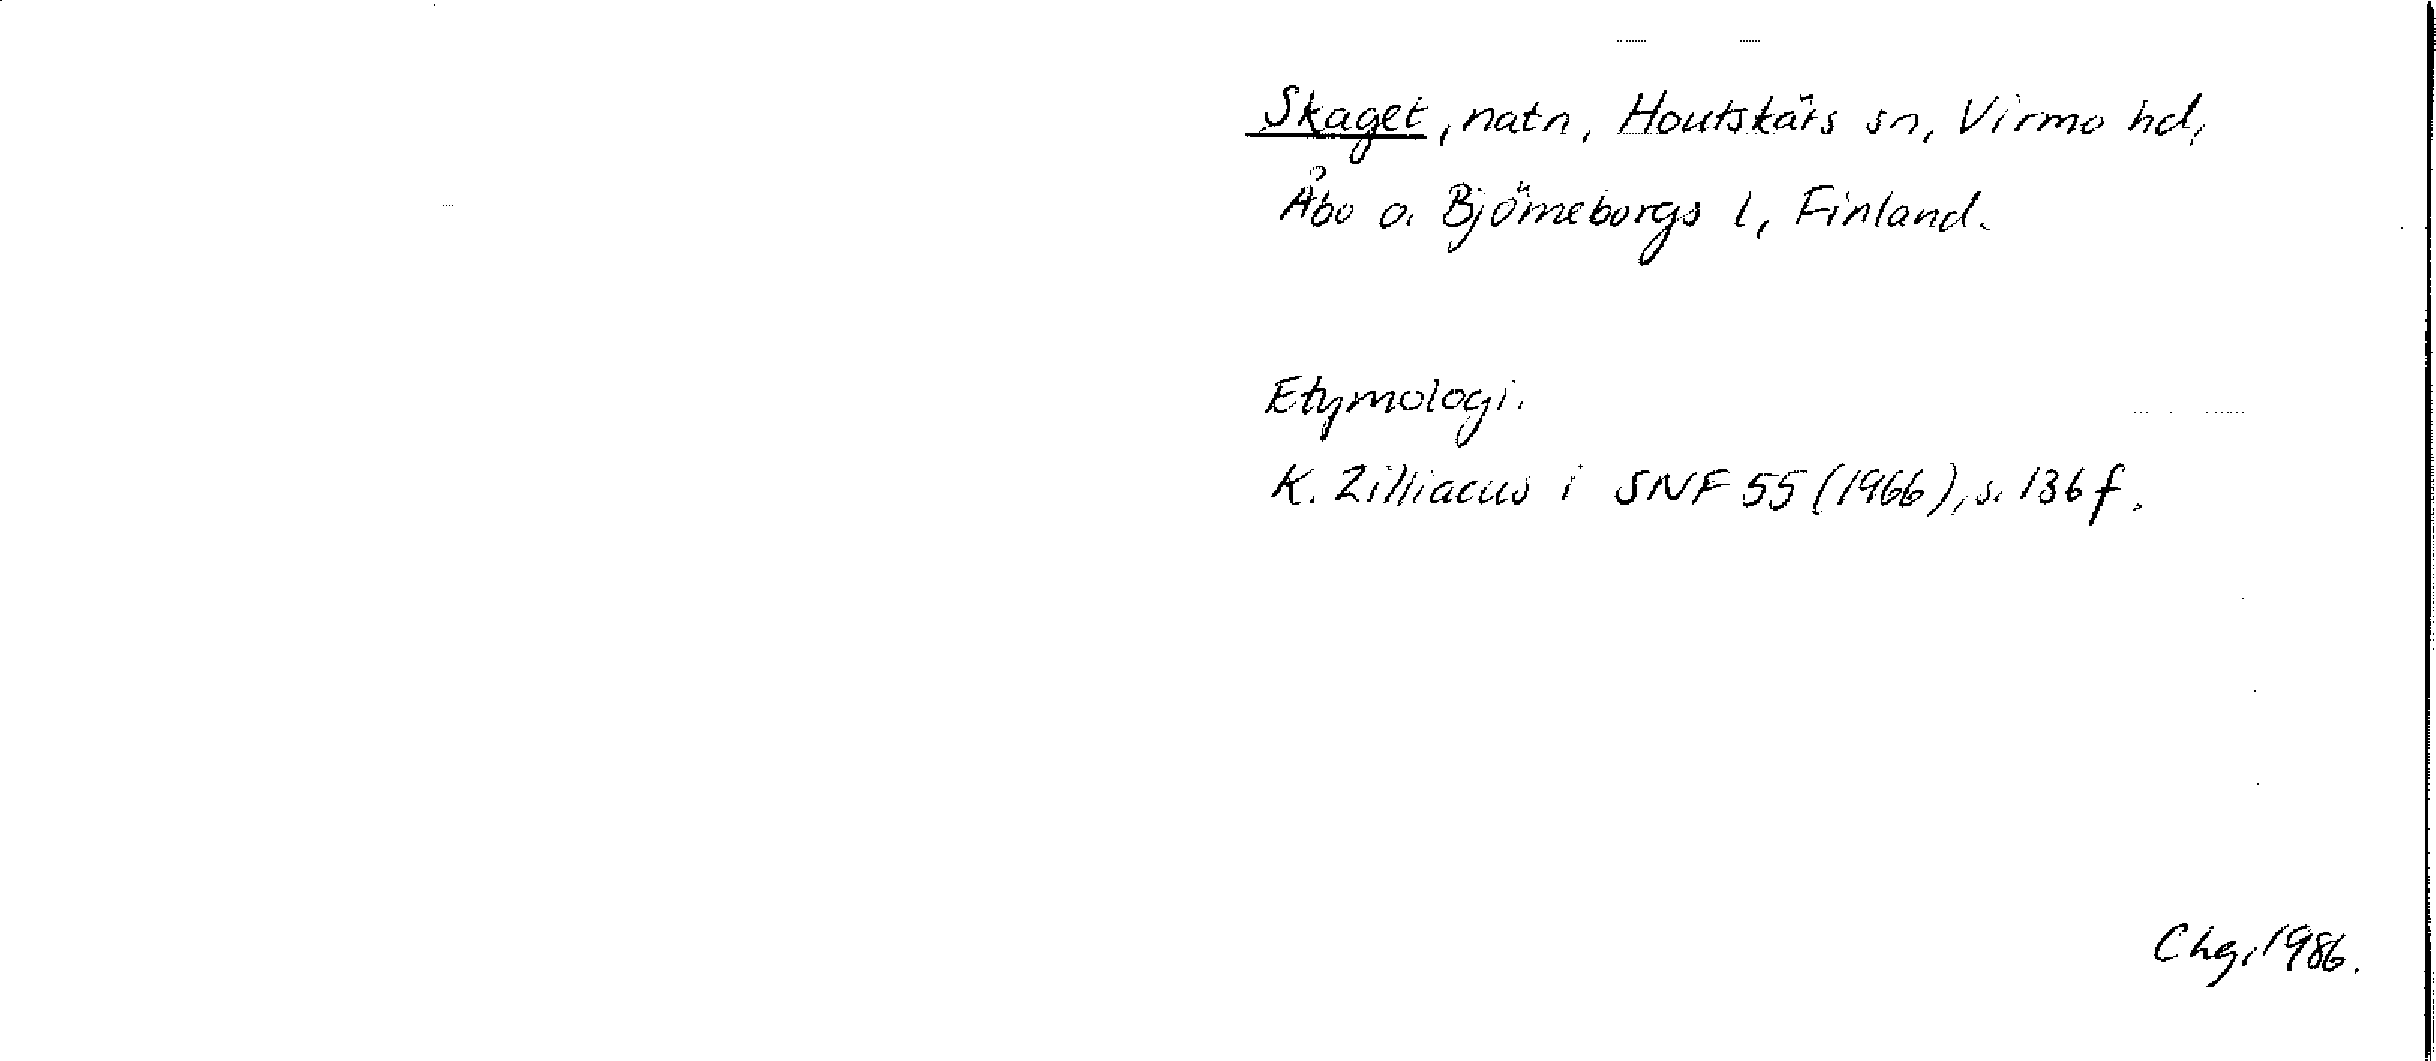 Skaget, natn, Houtskärs sn, Virmo hd,
Åbo o. Björneborgs l, Finland.
Etymologi.
K. Zilliacus i SNF 55 (1966), s. 136 f.
Chg, 1986.